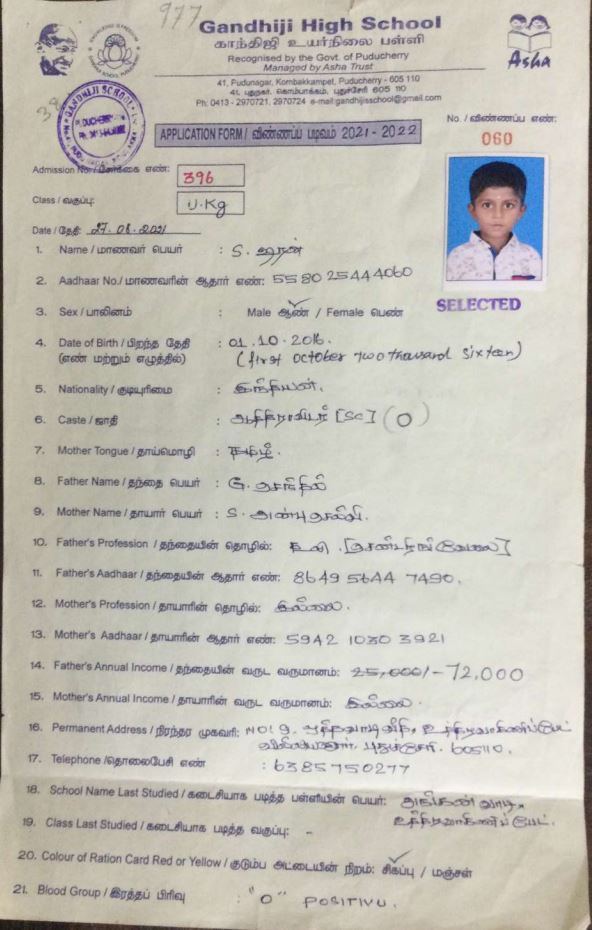 977
Gandhiji High School
காந்திஜி உயர்நிலை பள்ளி
Recognised by the Govt. of Puducherry
Managed by Asha Trust
Asha
41, Pudunagar, Kombakkampet, Puducherry - 605 110
41, புதுநகர், கொம்பாக்கம், புதுச்சேரி 605 110
Ph: 0413 - 2970721, 2970724 e-mail:gandhijisschool@gmail.com
GANDHIJI SCHOOL
PUDUCHERRY
APPLICATION FORM / விண்ணப்ப படிவம் 2021 - 2022
No. / விண்ணப்ப எண்:
060
Admission No. / சேர்க்கை எண்: 396
Class / வகுப்பு: U.Kg
Date / தேதி: 27.08.2021
SELECTED
1. Name / மாணவர் பெயர் : S.
2. Aadhaar No./ மாணவரின் ஆதார் எண்: 5580 25444060
3. Sex / பாலினம் : Male ஆண் / Female பெண்
4. Date of Birth / பிறந்த தேதி : 01.10.2016.
(எண் மற்றும் எழுத்தில்) (first october two thousand sixteen)
5. Nationality / குடியுரிமை : இந்தியன்.
6. Caste / ஜாதி : ஆதிதிராவிடர் [SC] (O)
7. Mother Tongue / தாய்மொழி : தமிழ்.
8. Father Name / தந்தை பெயர் : G. செந்தில்
9. Mother Name / தாயார் பெயர் : S. அன்புசெல்வி.
10. Father's Profession / தந்தையின் தொழில்: கூலி. [சென்டரிங் வேலை]
11. Father's Aadhaar / தந்தையின் ஆதார் எண்: 8649 5644 7490.
12. Mother's Profession / தாயாரின் தொழில்: இல்லை.
13. Mother's Aadhaar / தாயாரின் ஆதார் எண்: 5942 1030 3921
14. Father's Annual Income / தந்தையின் வருட வருமானம்: 25,000/- 72,000
15. Mother's Annual Income / தாயாரின் வருட வருமானம்: இல்லை.
16. Permanent Address / நிரந்தர முகவரி: NO: 9, உத்திரவாகினிப்பேட்
வில்லியனூர், புதுச்சேரி. 605110.
17. Telephone /தொலைபேசி எண் : 6385750277
18. School Name Last Studied / கடைசியாக படித்த பள்ளியின் பெயர்: அங்கன்வாடி,
உத்திரவாகினிப்பேட்.
19. Class Last Studied / கடைசியாக படித்த வகுப்பு: -
20. Colour of Ration Card Red or Yellow / குடும்ப அட்டையின் நிறம்: சிகப்பு / மஞ்சள்
21. Blood Group / இரத்தப் பிரிவு : "O" POSITIVU.